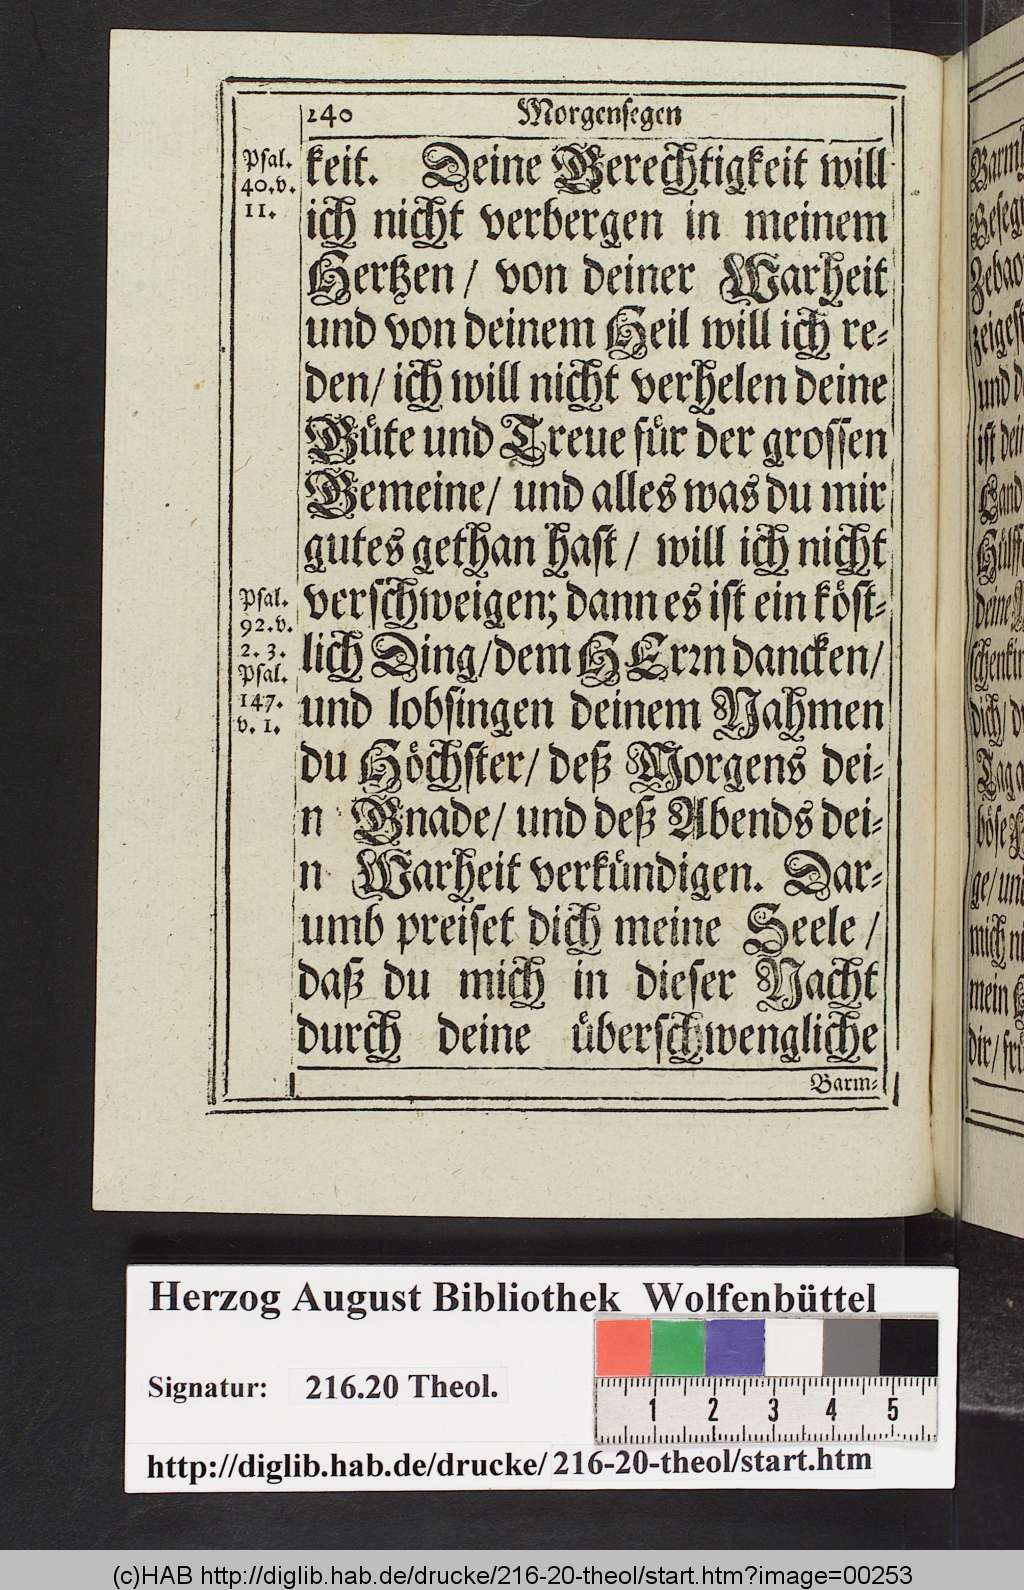 240
Morgensegen
Psal.
40.v.
11.
keit. Deine Gerechtigkeit will
ich nicht verbergen in meinem
Hertzen / von deiner Warheit
und von deinem Heil will ich re-
den / ich will nicht verhelen deine
Güte und Treue für der grossen
Gemeine / und alles was du mir
gutes gethan hast / will ich nicht
Psal.
92.v.
2. 3.
Psal.
147.
v. 1.
verschweigen; dann es ist ein köst-
lich Ding / dem HErrn dancken /
und lobsingen deinem Nahmen
du Höchster / deß Morgens dei-
n Gnade / und deß Abends dei-
n Warheit verkündigen. Dar-
umb preiset dich meine Seele /
daß du mich in dieser Nacht
durch deine überschwengliche
Barm-
Herzog August Bibliothek Wolfenbüttel
Signatur: 216.20 Theol.
1 2 3 4 5
http://diglib.hab.de/drucke/216-20-theol/start.htm
(c)HAB http://diglib.hab.de/drucke/216-20-theol/start.htm?image=00253